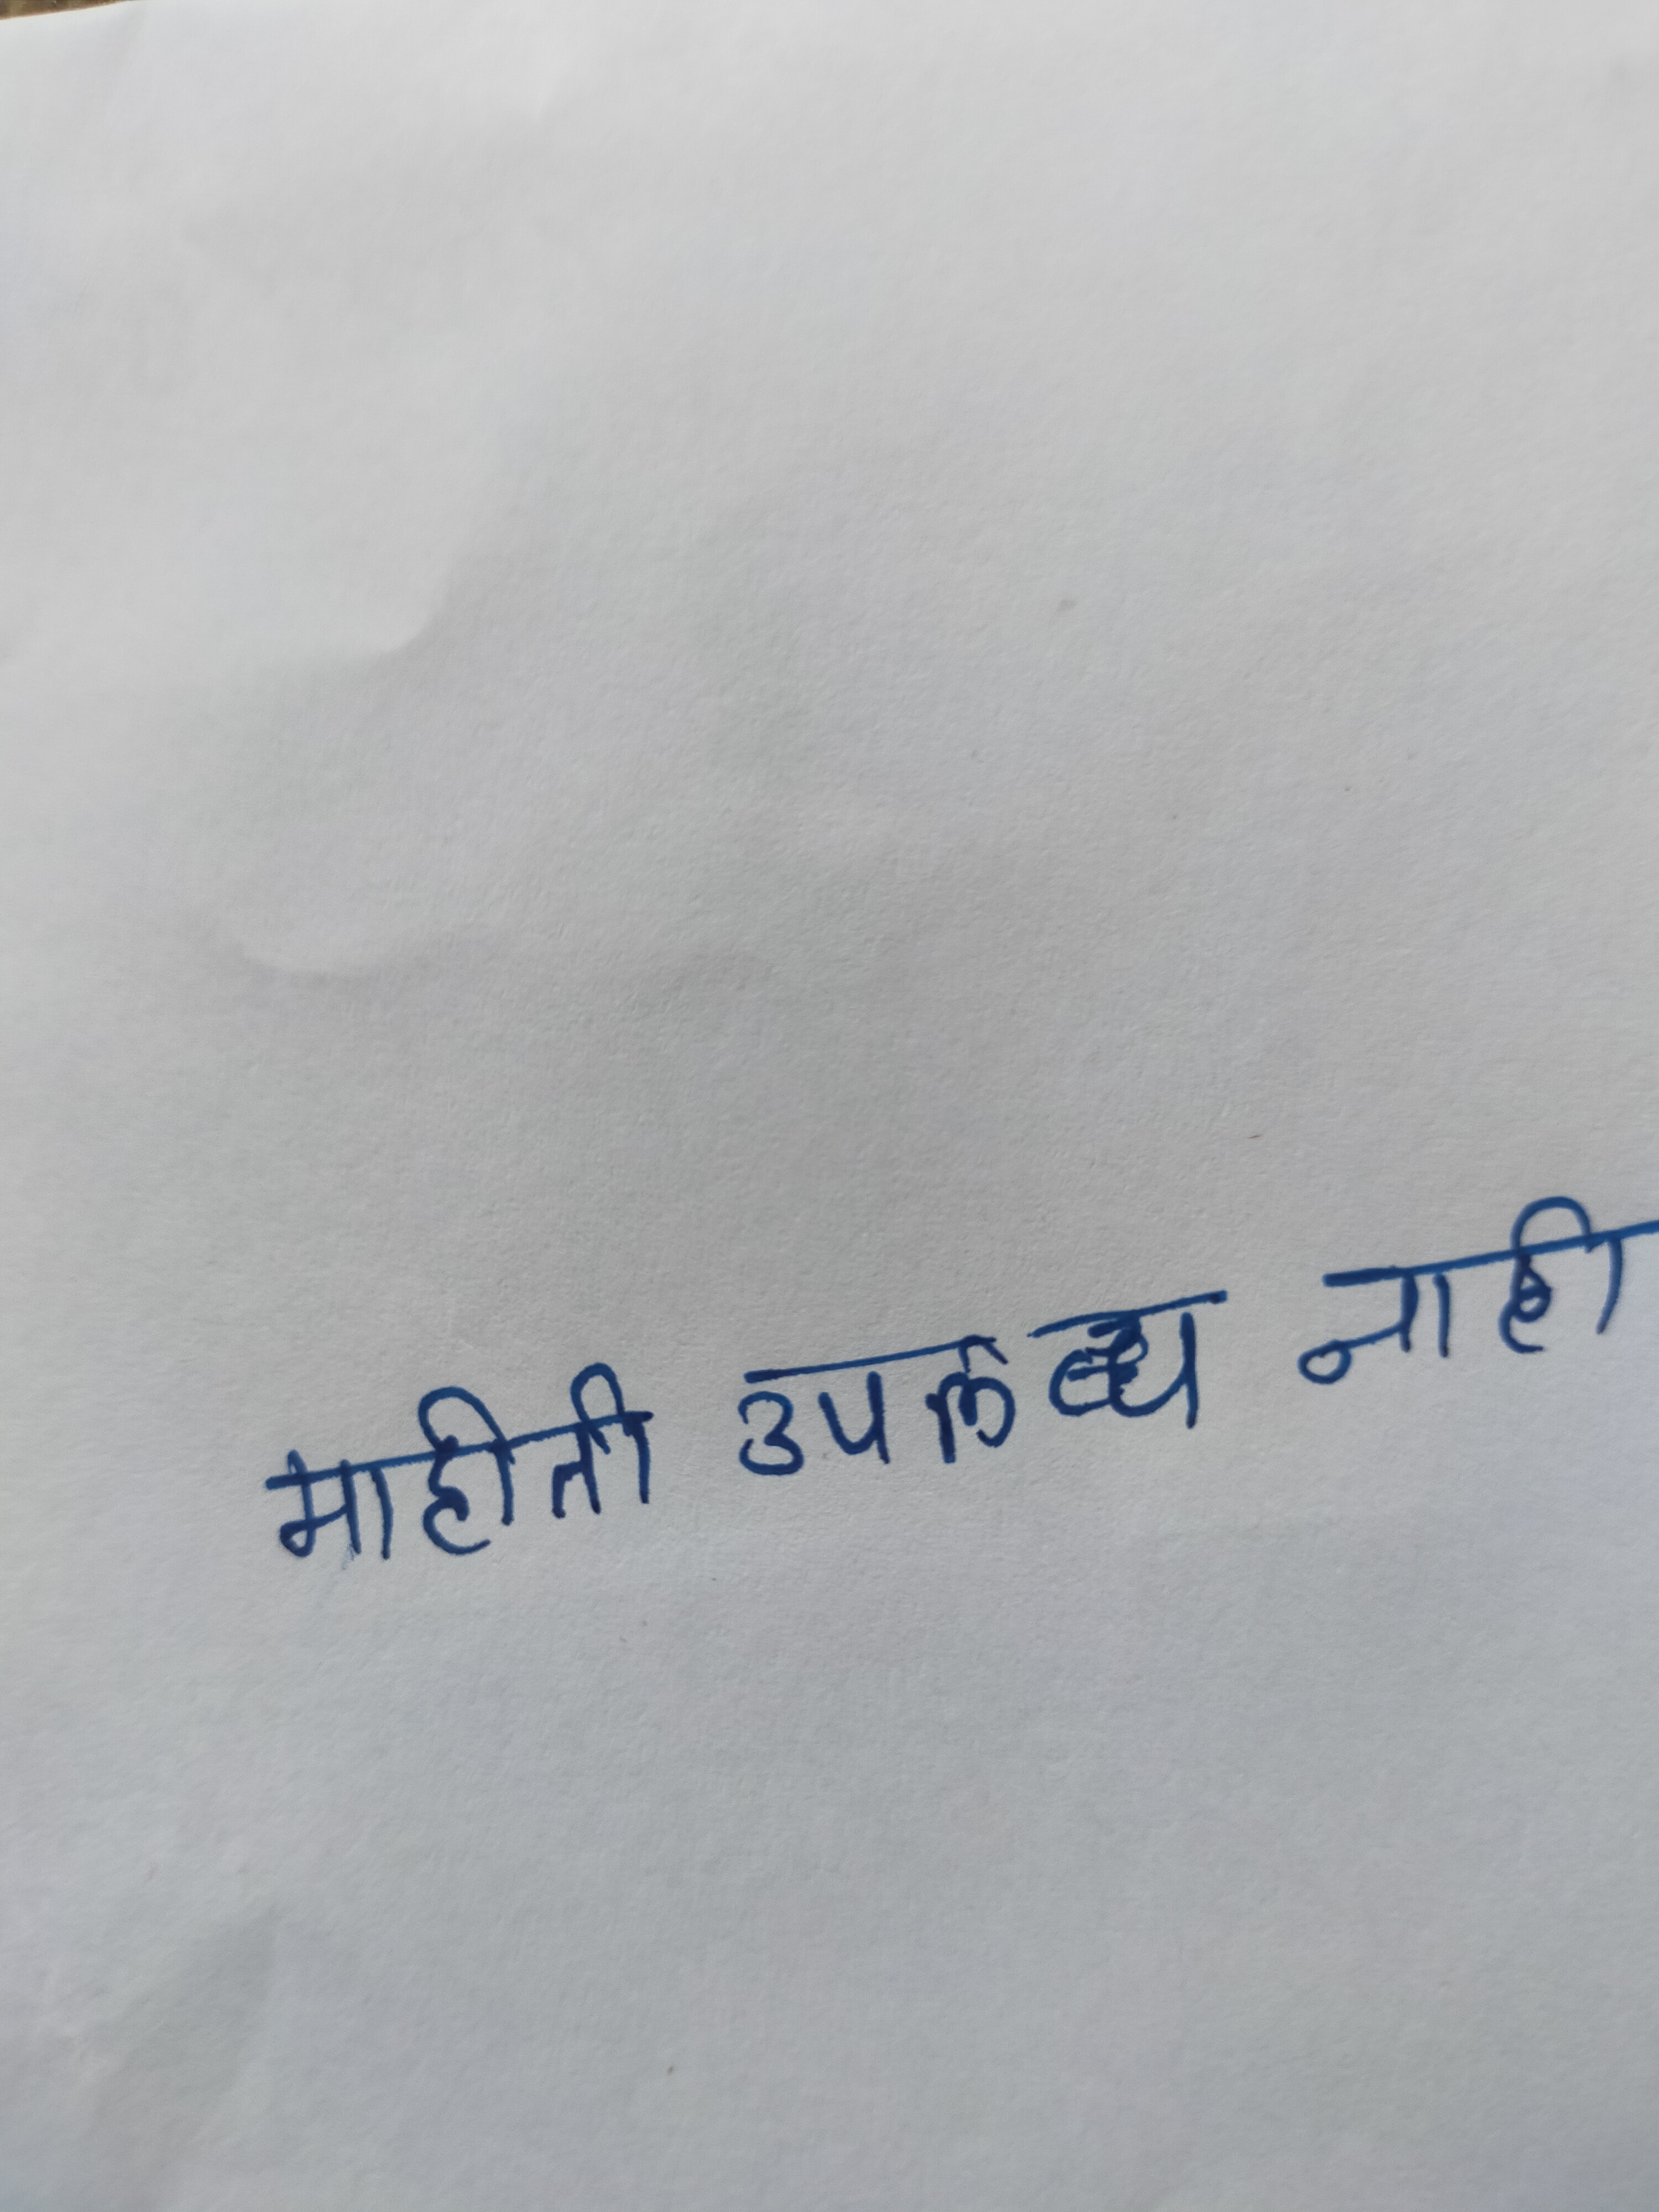 माहीती उपलब्ध नाही